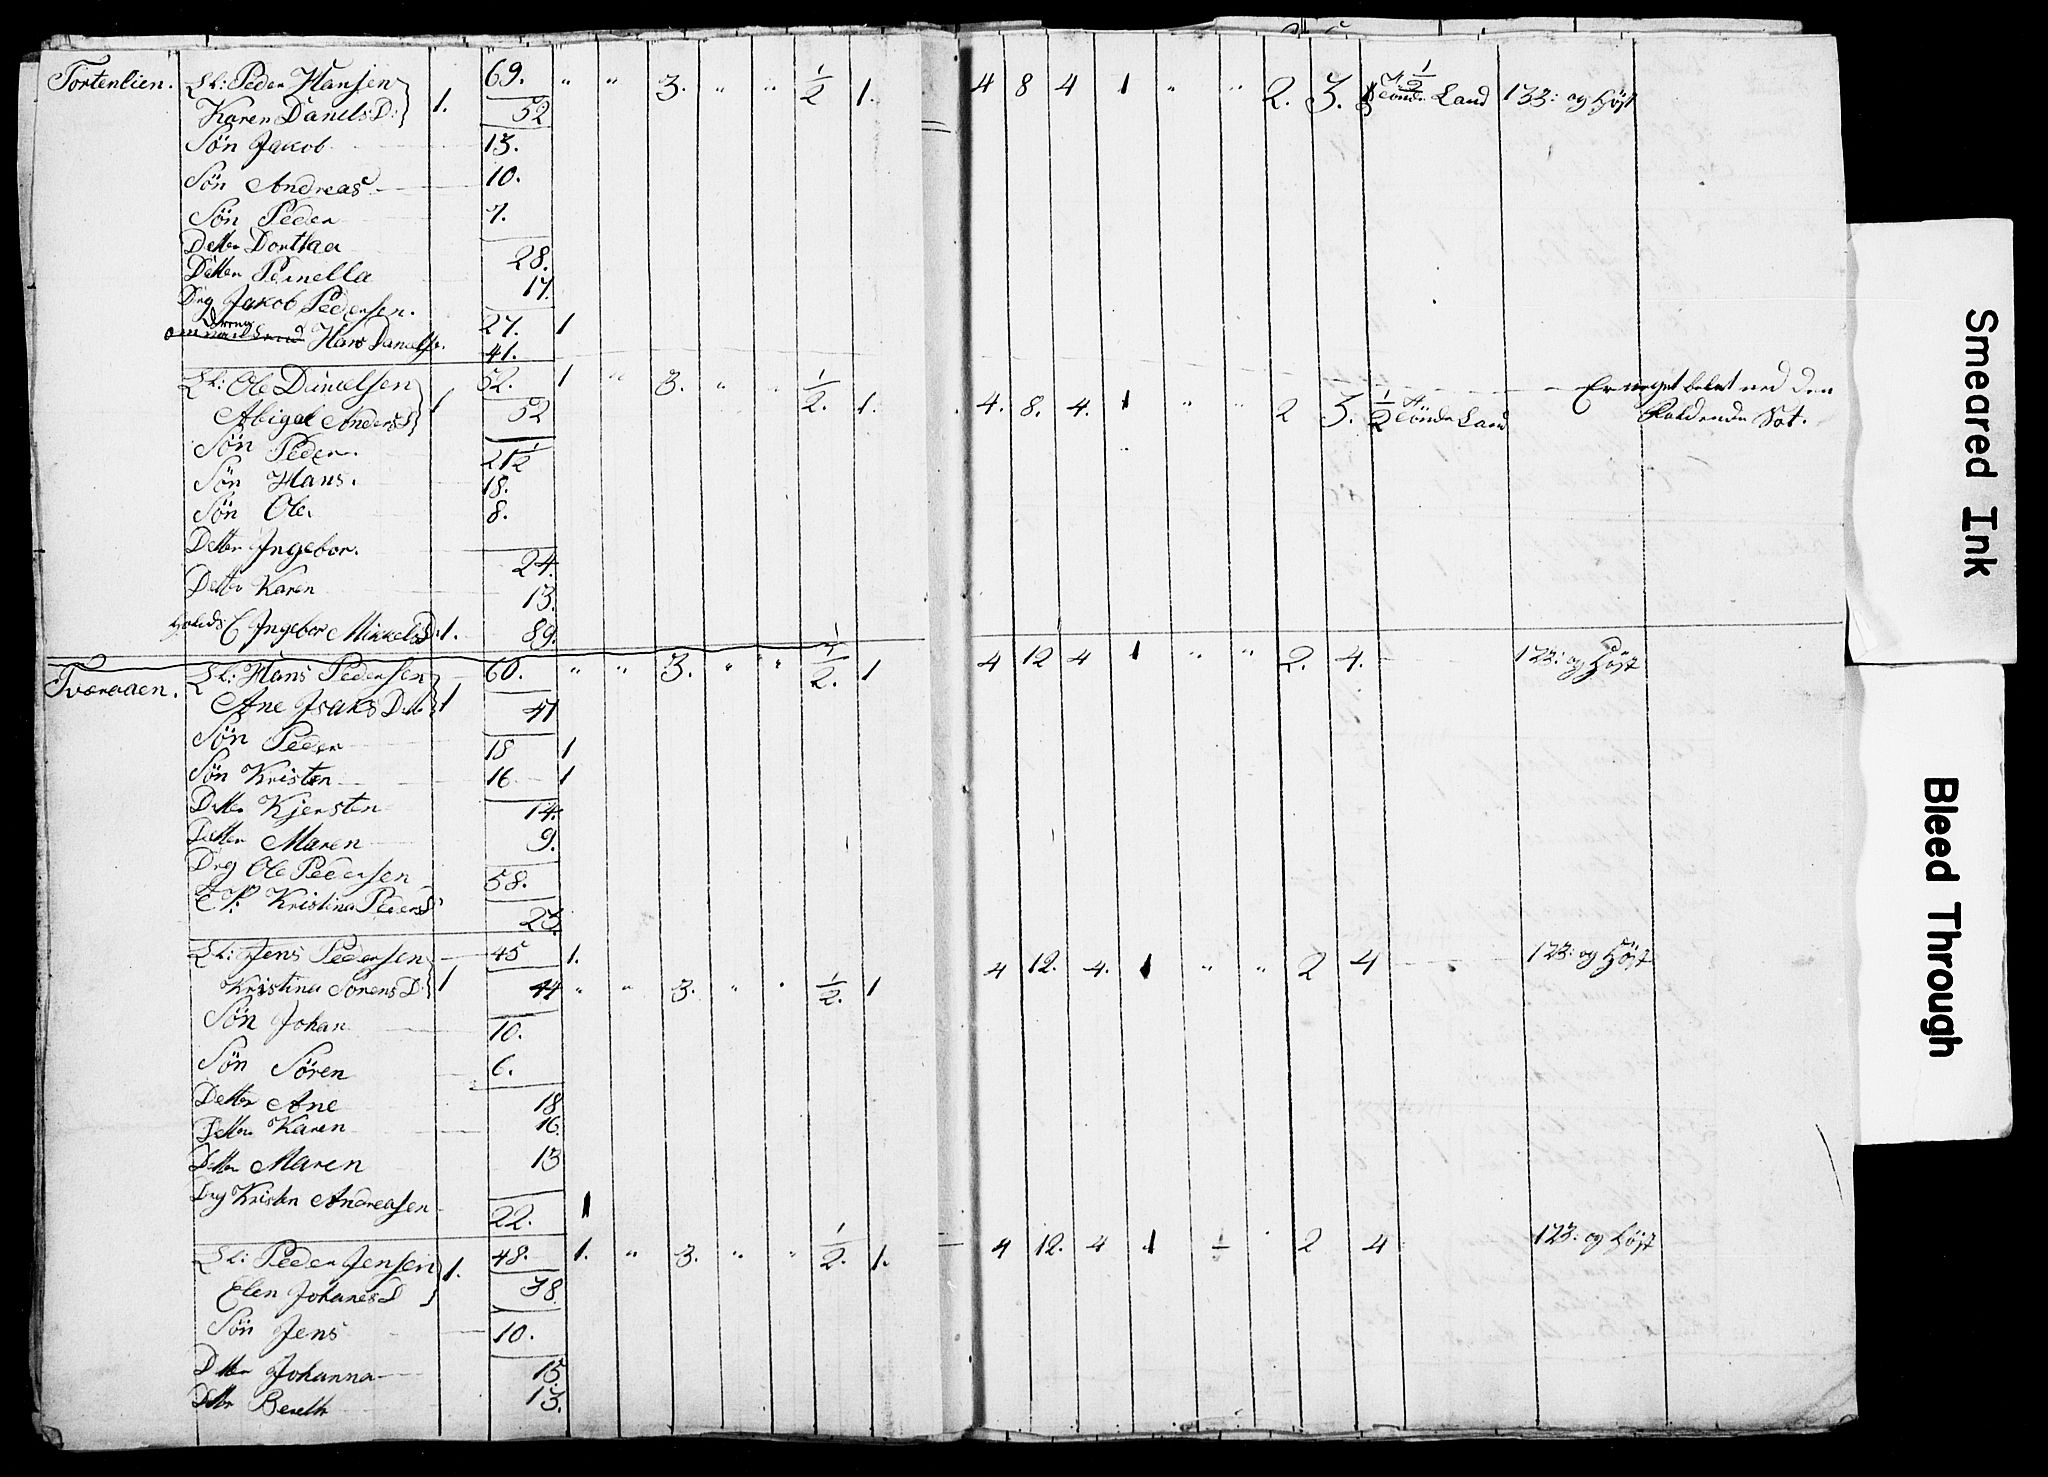 Tortenlien. Lk: Peder Hansen 1. 69. " " 3. " " 1/2 1. 4 8 4 1 " " 2. 3. 1/2 Tönde Land 133: og Höst
Karen Danels D: 52
Sön Jakob 13.
Sön Andreas 10.
Sön Peder 7.
Datter Dorthea 28.
Datter Pernella 17.
Drg Jakob Pedersen. 27. 1
Dreng Hans Danelsn. 41.
Lk: Ole Danielsen 1 52. 1 " 3. " " 1/2. 1. 4. 8. 4. 1 " " 2 3. 1/2 Tönde Land Er noget belat ved den
Abigel Anders D 52 faldende Sot.
Sön Peder. 21 1/2
Sön Hans. 18.
Sön Ole. 8.
Datter Ingebor. 24.
Datter Karen 13.
Ingebor Mikkels D: 1. 89.
Tværaaen. Lk: Hans Pedersen 1 60. " " 3. " " 1/2. 1 4 12 4 1 " " 2. 4. 123: og Höst
Ane Isaks Datter 41
Sön Peder 18 1
Sön Kristen 16 1
Datter Kjersten 14.
Datter Maren 9.
Drg Ole Pedersen 58.
Kristina Peders D 23.
Lk: Jens Pedersen 1 45 1. 4 12. 4. 1 " " 2 4 123: og Höst
Kristina Sorens D: 44 " " 3. " " 1/2. 1
Sön Johan 10.
Sön Sören 6.
Datter Ane 18
Datter Karen 16.
Datter Maren 13
Drg Kristen Andreasen 22. 1
Lk: Peder Jensen 1. 48. 1. " 3. " " 1/2. 1. 4 12. 4 1 2 4 123: og Höst
Elen Johanes D 38.
Sön Jens 10.
Datter Johanna 15.
Datter Bereth 13.
Smeared Ink
Bleed Through